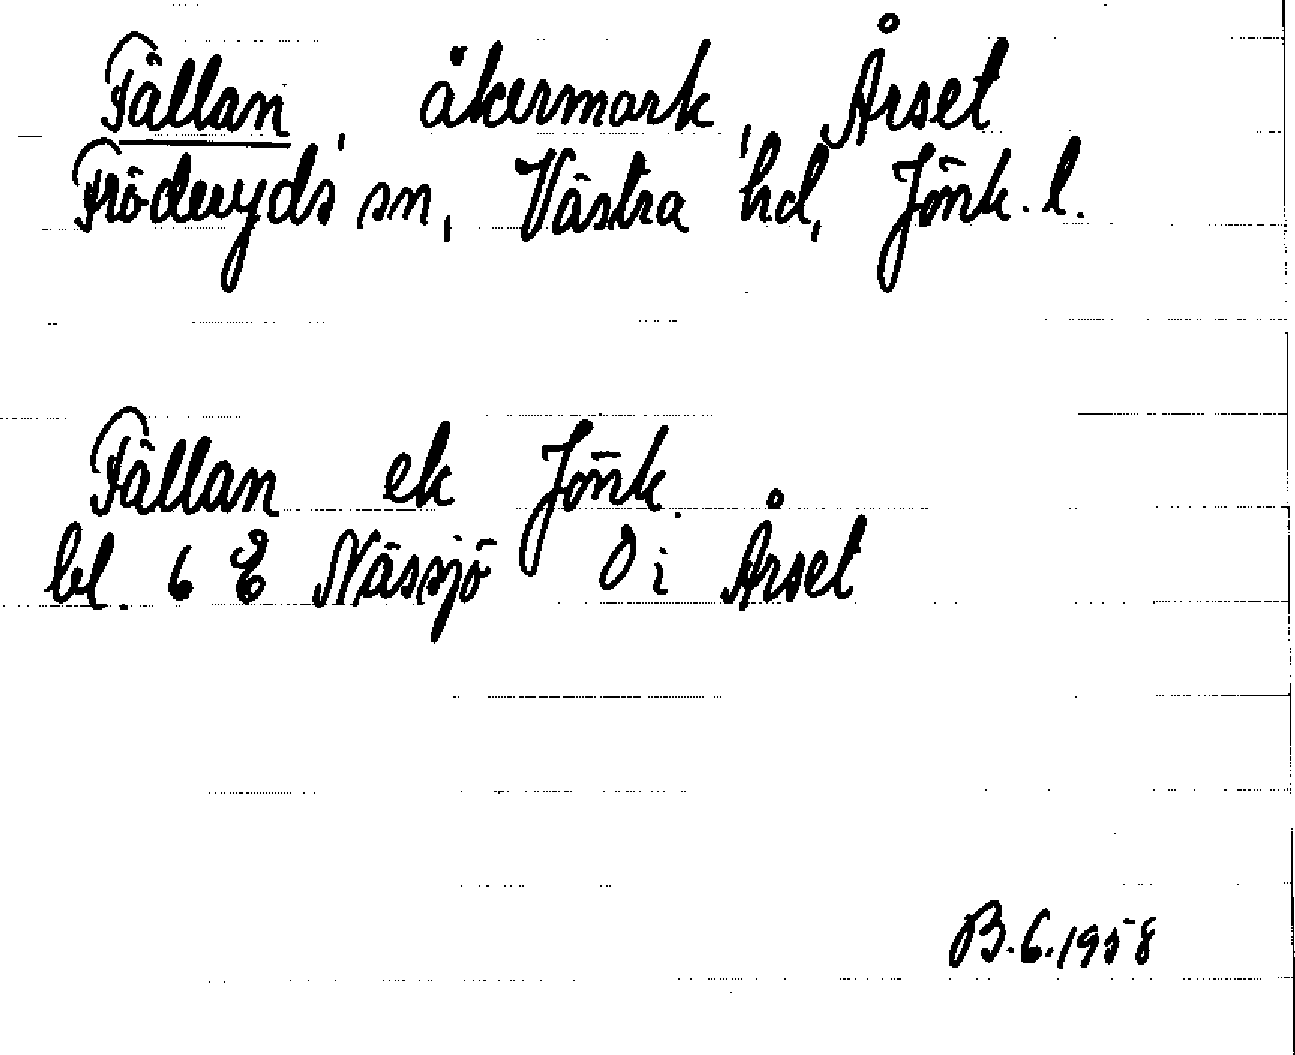 Fällan, åkermark, Årset
Fröderyds sn, Västra hd, Jönk. l.
Fällan ek Jönk.
bl. 6 E Nässjö O i Årset
B.G.1958